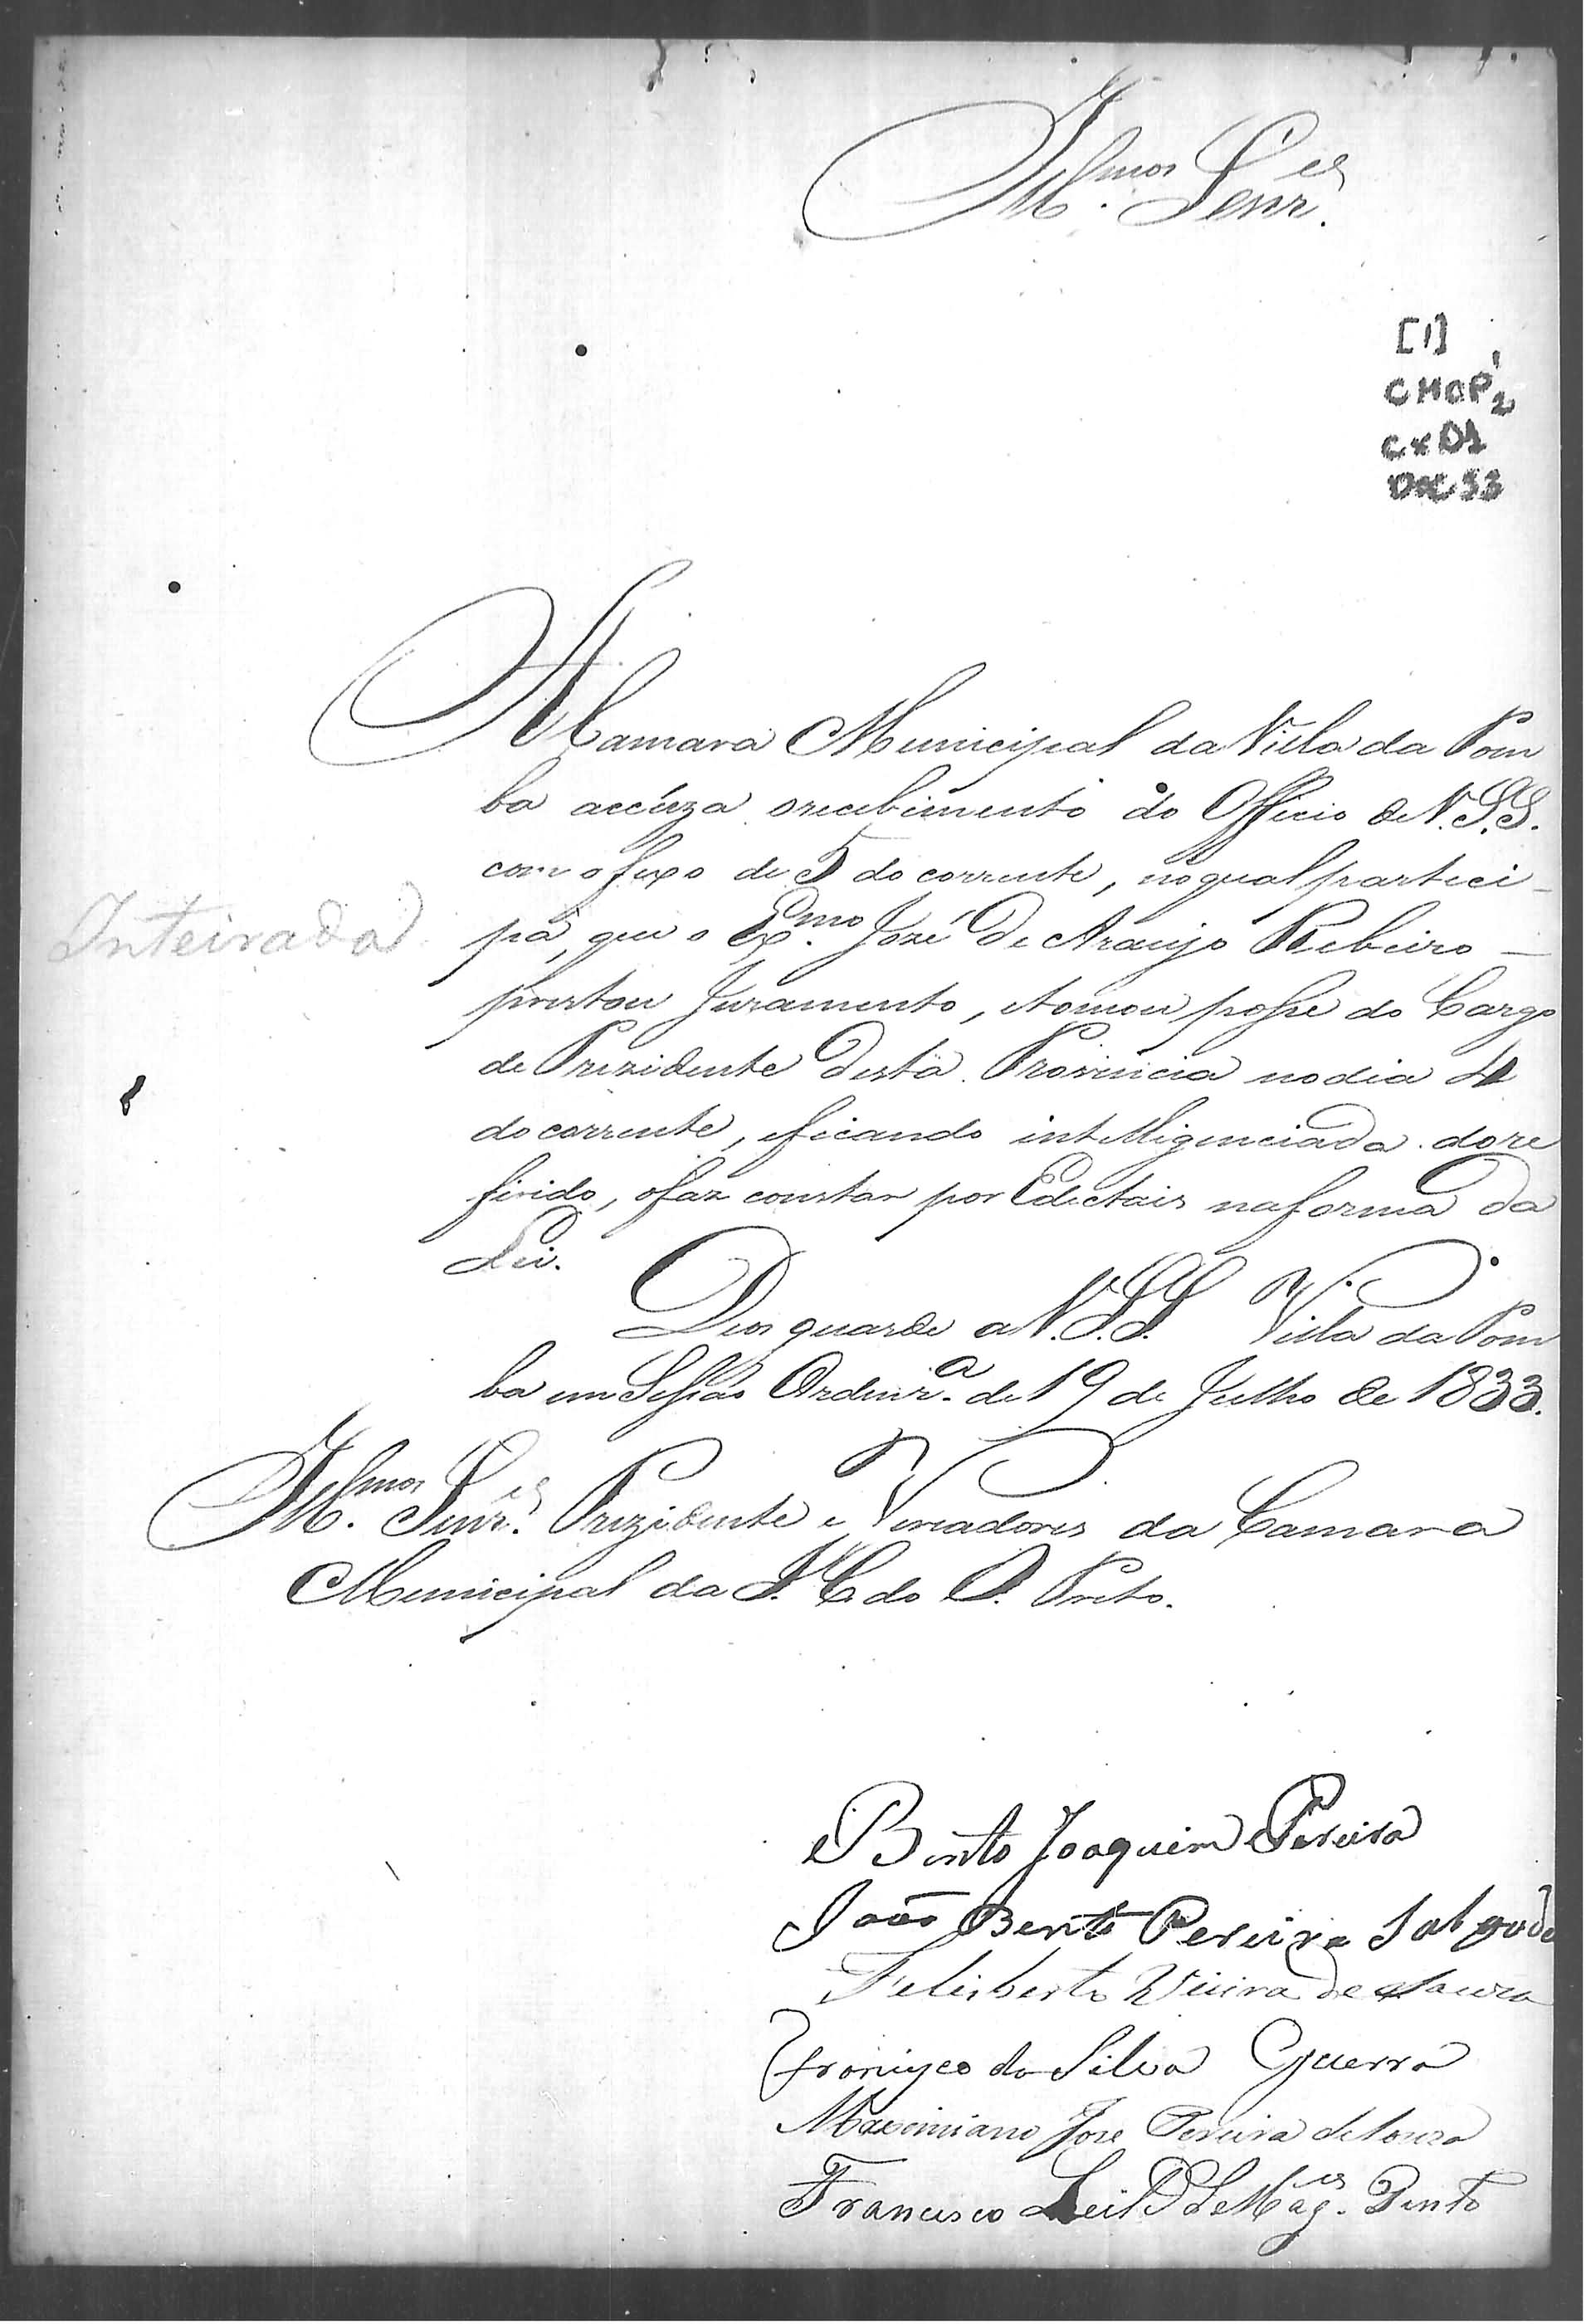 Illmos Senres.
[1]
CMOP2
Cx01
Doc 33
A Camara Municipal da Villa da Pom
ba accuza orecebimento do Officio de V.S.S.
com ofexo de 5 do corrente, noqual parteci-
pa, que o Exmo. Jozé de Araujo Rebeiro -
Inteirada
prestou Juramento, etomou posse do Cargo
de Prezidente desta Provincia nodia 4
docorrente, eficando intelligenciada dore
firido, ofaz constar por Edectais naforma da
Lei.
Deos guarde a V.S.S. Villa da Pom
ba em Sessão Ordinra. de 19 de Julho de 1833.
Illmos. Senres. Prezidente e Veriadores da Camara
Municipal da I. C. do O. Preto.
Bento Joaquim Pereira
João Bento Pereira Salgado
Felisberto Vieira de Souza
Francisco da Silva Guerra
Maximiano Jose Pereira deSouza
Francisco Leite de Mages. Pinto